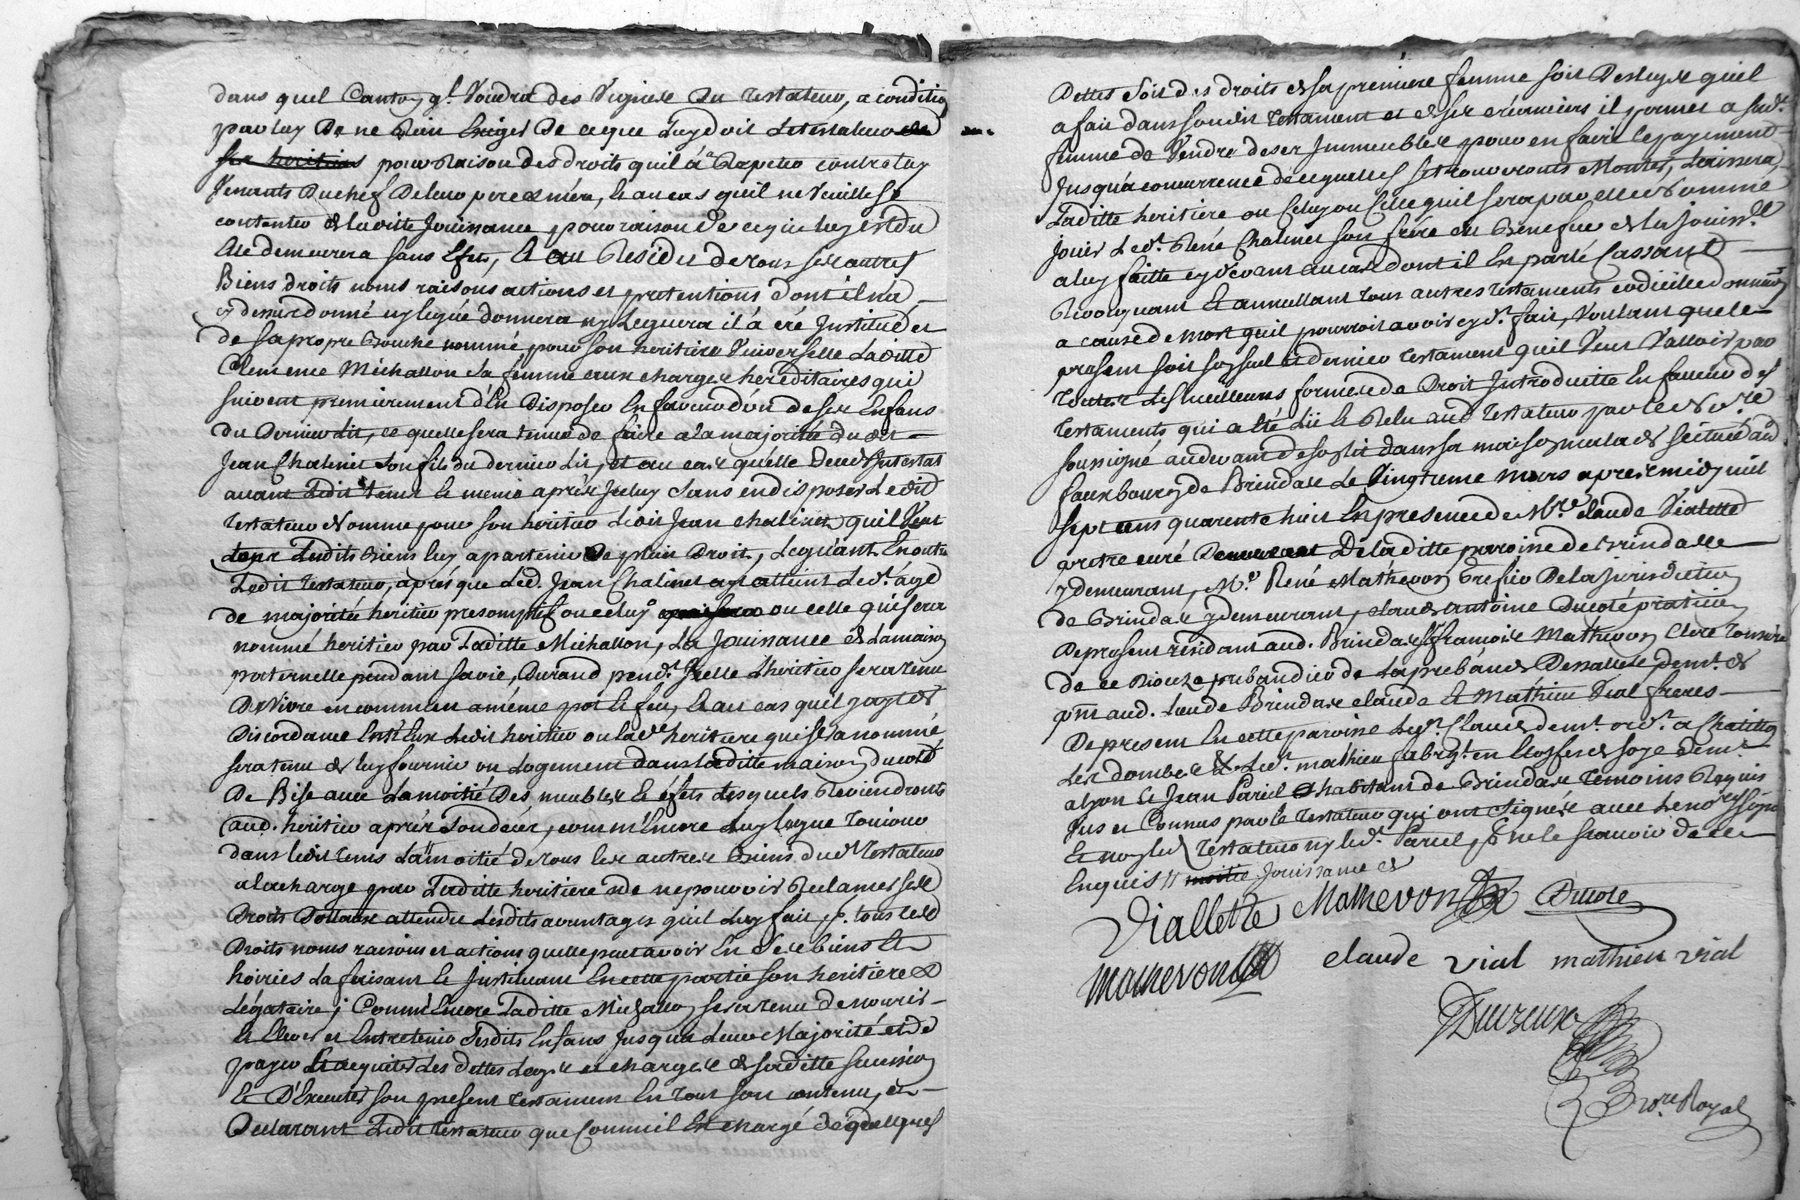 dans quel Canton ql. Voudra des Vignes Du testateur, a conditio
par luy De ne Rien Exiger De ce que Luy doit Le testateur
ses heritiers pour Raison des droits quil a a Repeter contre luy
Venants Du chef De leur pere & mere, Et au cas quil ne Veuille se
contenter de laditte Jouissance, pour raison De ce qui luy est du
Elle demeurera sans Effet, Et au Residu de tous ses autres
Biens droits noms raisons actions et pretentions dont il n'a
cy dessus donné ny legué donnera ny Leguera il à été Institué et
de sa propre Bouche nommé, pour son heritiere Universelle Laditte
Clemence Michallon Sa femme aux charges hereditaires qui
suivent premierement d'En Disposer En faveur d'un de ses Enfans
du Dernier Lit, ce quelle sera tenue de faire a la majorité du dit
Jean Chalinet son fils du dernier Lit, et au cas quelle Decede Intestat
avant Ledit tems Et meme aprés Iceluy Sans en disposer Ledit
testateur Nomme pour son heritier Ledit Jean chalinet quil Veut
Lesdits Biens luy apartenir De plein Droit, Leguant En outre
Ledit testateur, aprés que Led. Jean Chalinet aye atteint Led. age
de majorité heritier presomptif ou celuy ou celle qui sera
nommé heritier par Laditte Michallon, La Jouissance de La maison
paternelle pendant sa vie, Durand pendt. Icelle L'heritier sera tenu
De Vivre en commun a même pot Et feu, Et au cas quil y aye de
Discordance Entr'Eux Ledit heritier ou lade. heritiere qui sera nommé
sera tenu de luy fournir un Logement dans laditte maison du coté
De Bise avec La moitié Des meubles Et éfets lesquels Reviendront
aud. heritier aprés son decés, comm'Encore Luy legue Toujour
dans ledit tems La moitié de tous les autres Biens dudt. Testateur
a la charge par Laditte heritiere de ne pouvoir Reclamer ses
Droits Dottaux attendu Lesdits avantages quil Luy fait, p. tous les
Droits noms raisons et actions quelle peut avoir En Ses biens Et
hoiries La faisant Et Instituant En cette partie son heritiere &
Légataire; Comm'Encore Laditte Michallon sera tenue de nourir
Et Elever et Entretenir Lesdits Enfans Jusqua Leur Majorité et de
payer Et acquiter Les dettes Legs et charges de sa ditte succession
Et D'Executer son present testament En tout son contenu, et
Declarant Ledit testateur que Comm'il Est chargé de quelques
Dettes Soit des droits de sa premiere femme soit Des legs quil
a fait dans son dit testament et de ses créanciers il permet a sadt.
femme de Vendre de ses Immeubles pour en faire Le payement
Jusqu'a concurrence de ce quelles se trouveront Monter, Laissera,
Laditte heritiere ou Celuy ou Celle quil sera par elle Nommé
Jouir Led. René Chalinet son frere du Benefice de la Jouisse.
a luy faitte cy devant au cas dont il En parle Cassant
Révoquant Et annullant tous autres testaments codicilles donnaons
a cause de mort quil pourroit avoir cy dt. fait, Voulant que le
present soit son seul Et dernier testament quil Veut Valloir par
Toutes Les meilleurs formes de Droit Introduitte En faveur des
testaments qui a Eté Lü Et Relu aud. testateur par le Nore.
soussigné au devant de son lit dans sa maison situeé aud.
faux bourg de Brindas Le Vingtieme mars apres midy mil
sept cens quarente huit En presence de Mre. claude Vialette
pretre curé De laditte paroisse de Brindas
y demeurant, Me. René Mathevon Grefier De la Jurisdiction
de Brindas y demeurant, claude antoine Ducoté praticien
De present residant aud. Brindas, Sr. françois Mathevon Clerc Tonsuré
de ce Dioceze prebandier de la prebande De demt. de
pnt. aud. Lieu de Brindas claude Et Mathieu Vial freres
De present En cette paroisse Ledt. Claude demt. ordt. a Chatillon
Les dombes & Led. mathieu fabriqt. en Etoffes de soye demt.
a Lyon Et Jean Pariel habitant de Brindas temoins Requis
Jus et Connus par le testateur qui ont signés avec Le nore. soussigné
Et non led. testateur ny led. Pariel p. Ne le scavoir de ce
Enquis // moitie Jouissance de
Viallette Mathevon Ducoté
Mathevon claude vial mathieu vial
Duizeux
Nore. Royal